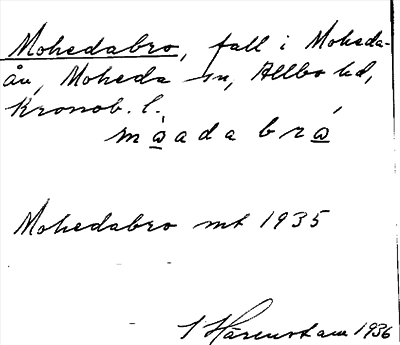 Mohedabro, fall i Moheda-
ån, Moheda sn, Allbo hd,
Kronob. l.,
mɷadabrɷ́
Mohedabro mt 1935
Härenstam 1936